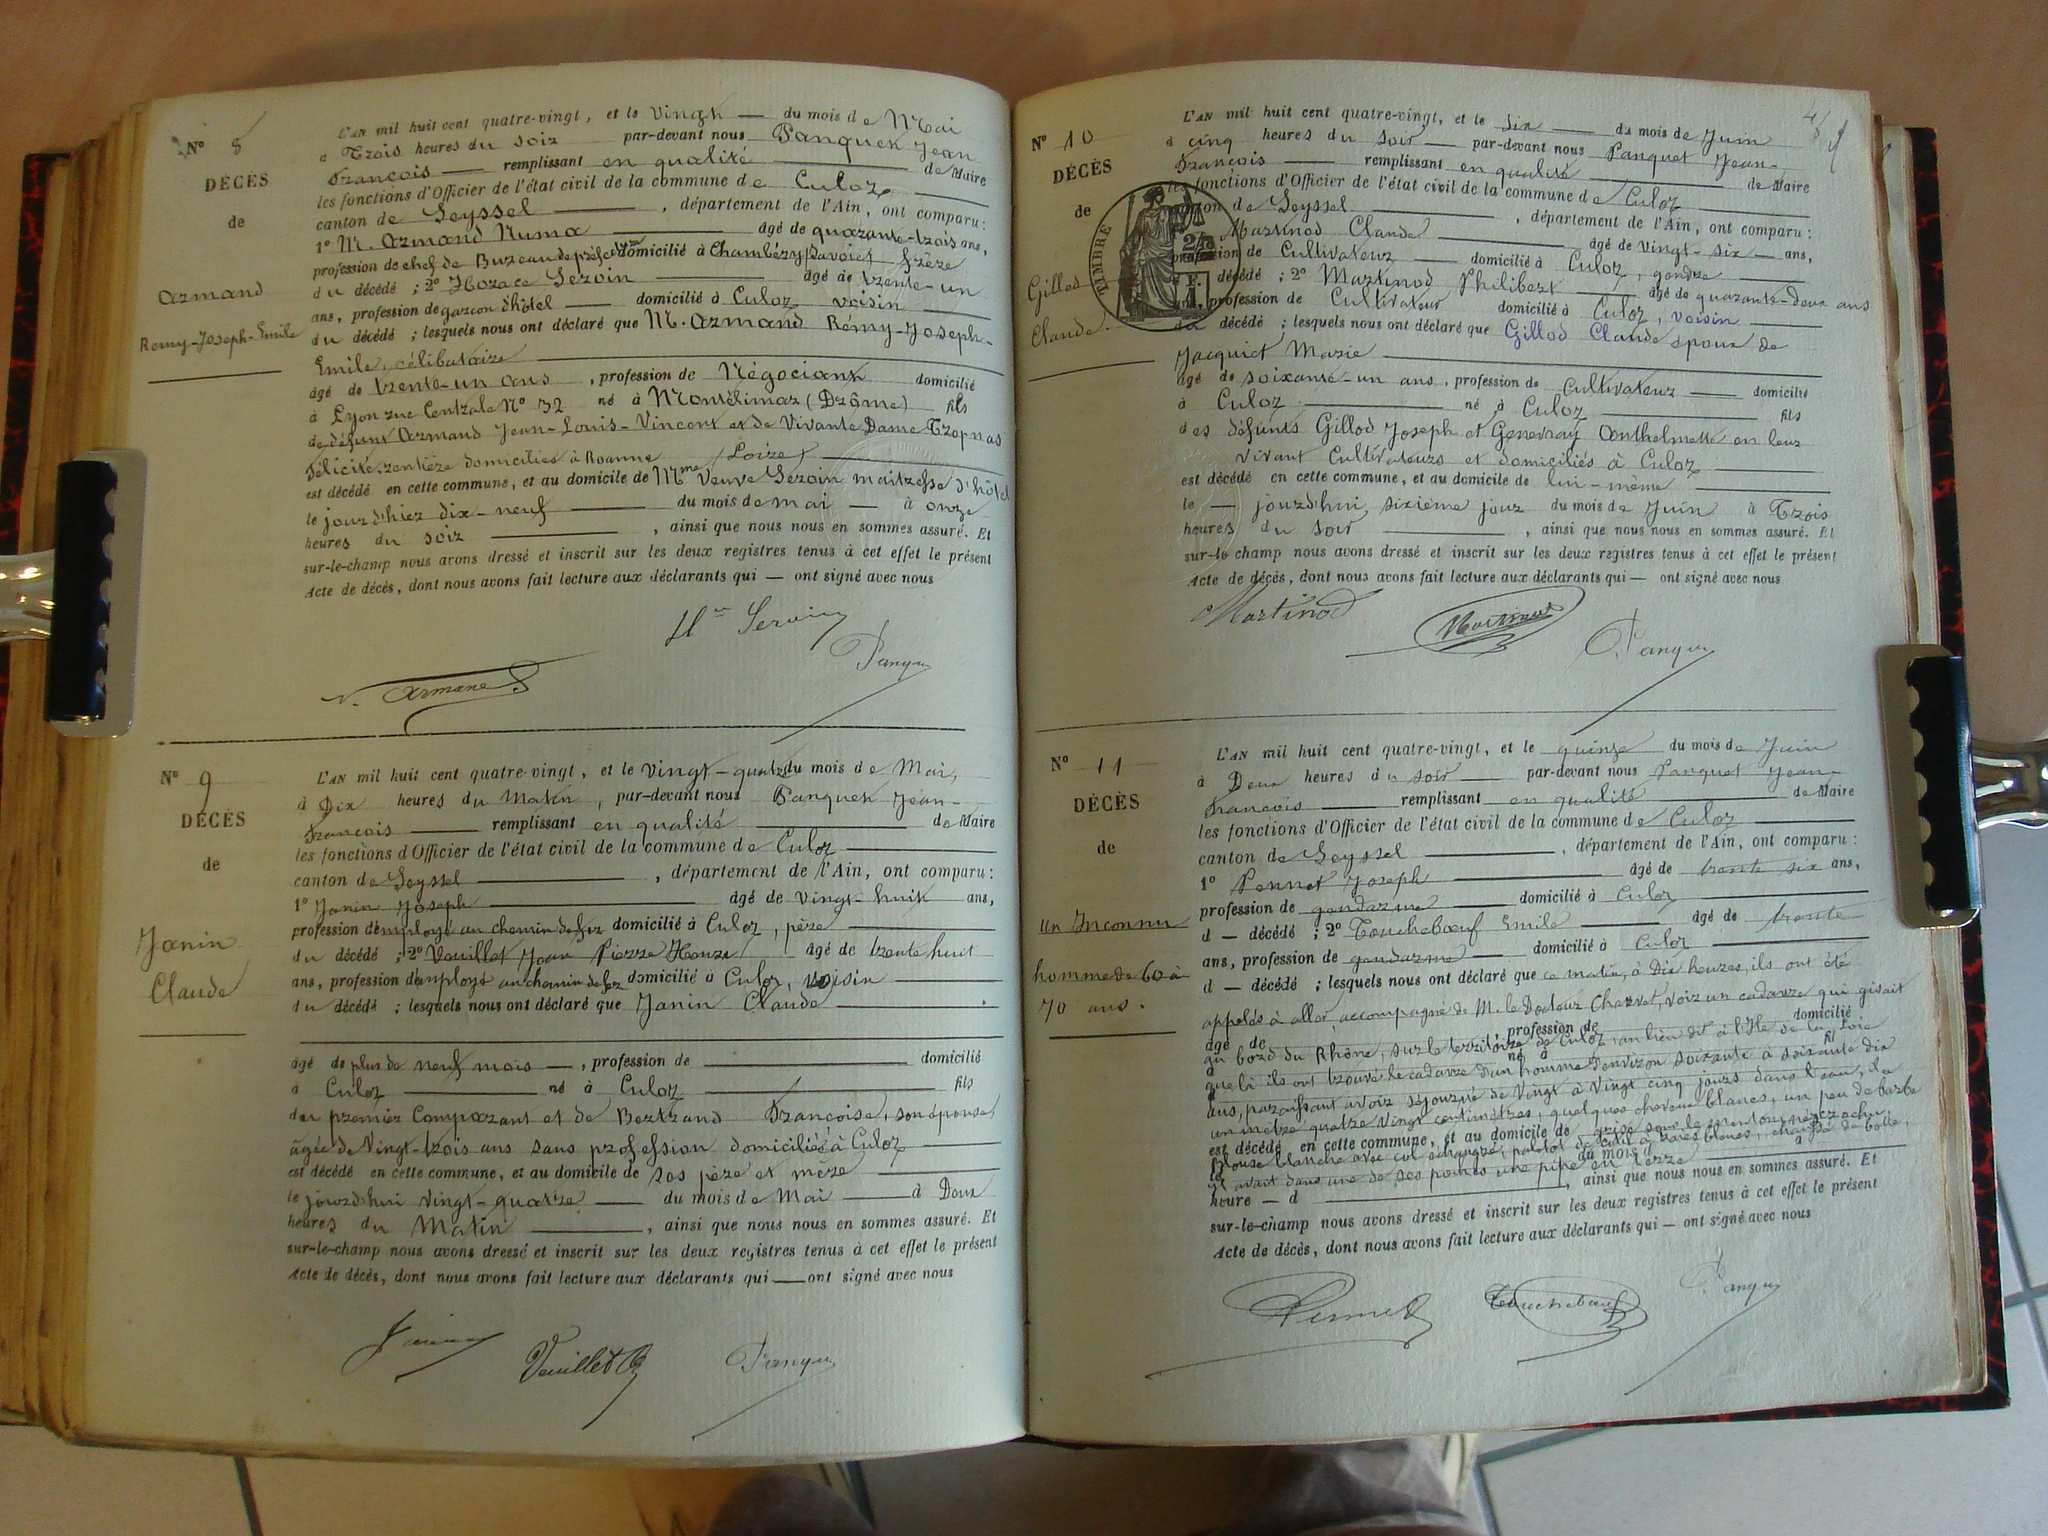 N° 8
DÉCÈS
de
Armand
Remy-Joseph-Emile
L'AN mil huit cent quatre-vingt, et le Vingt — du mois de Mai
à Trois heures du soir par-devant nous Panquet Jean
François — remplissant en qualité — de Maire
les fonctions d'Officier de l'état civil de la commune de Culoz
canton de Seyssel — , département de l'Ain, ont comparu :
1° M. Armand Numa — âgé de quarante-trois ans,
profession de chef de Bureau de préfecture domicilié à Chambéry (Savoie) frère
du décédé ; 2° Horace Seroin — âgé de trente-un
ans, profession de garçon d'hôtel — domicilié à Culoz voisin
du décédé ; lesquels nous ont déclaré que M. Armand Rémy-Joseph-
Emile, célibataire
âgé de trente-un ans , profession de Négociant domicilié
à Lyon rue Centrale N° 32 né à Montélimar (Drôme) — fils
de défunt Armand Jean-Louis-Vincent et de Vivante Dame Tropnas
Félicité, rentière domiciliée à Roanne (Loire)
est décédé en cette commune, et au domicile de Mme Veuve Seroin maitresse d'hôtel
le jourd'hier dix-neuf — du mois de mai — à onze
heures du soir — , ainsi que nous nous en sommes assuré. Et
sur-le-champ nous avons dressé et inscrit sur les deux registres tenus à cet effet le présent
Acte de décès, dont nous avons fait lecture aux déclarants qui — ont signé avec nous
N. Armand
Panquet
N° 9
DÉCÈS
de
Janin
Claude
L'AN mil huit cent quatre-vingt, et le Vingt-quatre du mois de Mai,
à Dix heures du Matin , par-devant nous Panquet Jean-
François — remplissant en qualité — de Maire
les fonctions d'Officier de l'état civil de la commune de Culoz
canton de Seyssel — , département de l'Ain, ont comparu :
1° Janin Joseph — âgé de vingt-huit ans,
profession d'employé au chemin de fer domicilié à Culoz, père
du décédé ; 2° Vouillet Jean Pierre Henri âgé de trente huit
ans, profession d'employé au chemin de fer domicilié à Culoz, voisin
du décédé ; lesquels nous ont déclaré que Janin Claude
âgé de plus de neuf mois — , profession de — domicilié
à Culoz — né à Culoz — fils
du premier Comparant et de Bertrand Françoise, son épouse,
âgée de Vingt-trois ans sans profession domiciliée à Culoz
est décédé en cette commune, et au domicile de ses père et mère
le jourd'hui vingt-quatre — du mois de Mai — à Deux
heures du Matin — , ainsi que nous nous en sommes assuré. Et
sur-le-champ nous avons dressé et inscrit sur les deux registres tenus à cet effet le présent
Acte de décès, dont nous avons fait lecture aux déclarants qui — ont signé avec nous
Janin Panquet
N° 10
DÉCÈS
de
Gillod
Claude.
TIMBRE
L'AN mil huit cent quatre-vingt, et le six — du mois de Juin
à cinq heures du soir — par-devant nous Panquet Jean-
François — remplissant en qualité — de Maire
les fonctions d'Officier de l'état civil de la commune de Culoz
canton de Seyssel — , département de l'Ain, ont comparu :
Martinod Claude — âgé de vingt-six — ans,
profession de Cultivateur — domicilié à Culoz, gendre
décédé ; 2° Martinod Philibert — âgé de quarante-Deux ans
ans, profession de Cultivateur domicilié à Culoz, voisin
du décédé ; lesquels nous ont déclaré que Gillod Claude époux de
Jacquiet Marie
âgé de soixante-un ans, profession de Cultivateur — domicilié
à Culoz — né à Culoz — fils
des défunts Gillod Joseph et Genevray Anthelmette en leur
vivant Cultivateurs et domiciliés à Culoz
est décédé en cette commune, et au domicile de lui-même
le — jourd'hui, sixième jour du mois de Juin à Trois
heures du soir — , ainsi que nous nous en sommes assuré. Et
sur-le-champ nous avons dressé et inscrit sur les deux registres tenus à cet effet le présent
Acte de décès, dont nous avons fait lecture aux déclarants qui — ont signé avec nous
Martinod Martinod Panquet
N° 11
DÉCÈS
de
un Inconnu
homme de 60 à
70 ans.
L'AN mil huit cent quatre-vingt, et le quinze du mois de Juin
à Deux heures du soir — par-devant nous Panquet Jean-
François — remplissant en qualité — de Maire
les fonctions d'Officier de l'état civil de la commune de Culoz
canton de Seyssel — , département de l'Ain, ont comparu :
1° Pennet Joseph — âgé de trente six ans,
profession de gendarme — domicilié à Culoz
d — décédé ; 2° Toucheboeuf Emile — âgé de trente
ans, profession de gendarme — domicilié à Culoz
d — décédé ; lesquels nous ont déclaré que ce matin, à Dix heures, ils ont été
appelés à aller, accompagné de M. le Docteur Charvet, voir un cadavre qui gisait
âgé de , profession de domicilié
au bord du Rhône, sur le territoire de Culoz, au lieu dit à l'Ile de la Loie
à né à fil
que là ils ont trouvé le cadavre d'un homme d'environ soixante à soixante dix
ans, paraissant avoir séjourné de Vingt à Vingt cinq jours dans l'eau, de
un mètre quatre Vingt centimètres, quelques cheveux blancs, un peu de barbe
est décédé en cette commune, et au domicile de
grise sous le menton,
Blouse blanche avec col échancré, raies blanches, chaussé de botte,
le du mois d à
il avait dans une de ses poches une pipe en terre
heure — d — , ainsi que nous nous en sommes assuré. Et
sur-le-champ nous avons dressé et inscrit sur les deux registres tenus à cet effet le présent
Acte de décès, dont nous avons fait lecture aux déclarants qui — ont signé avec nous
Pennet Toucheboeuf Panquet